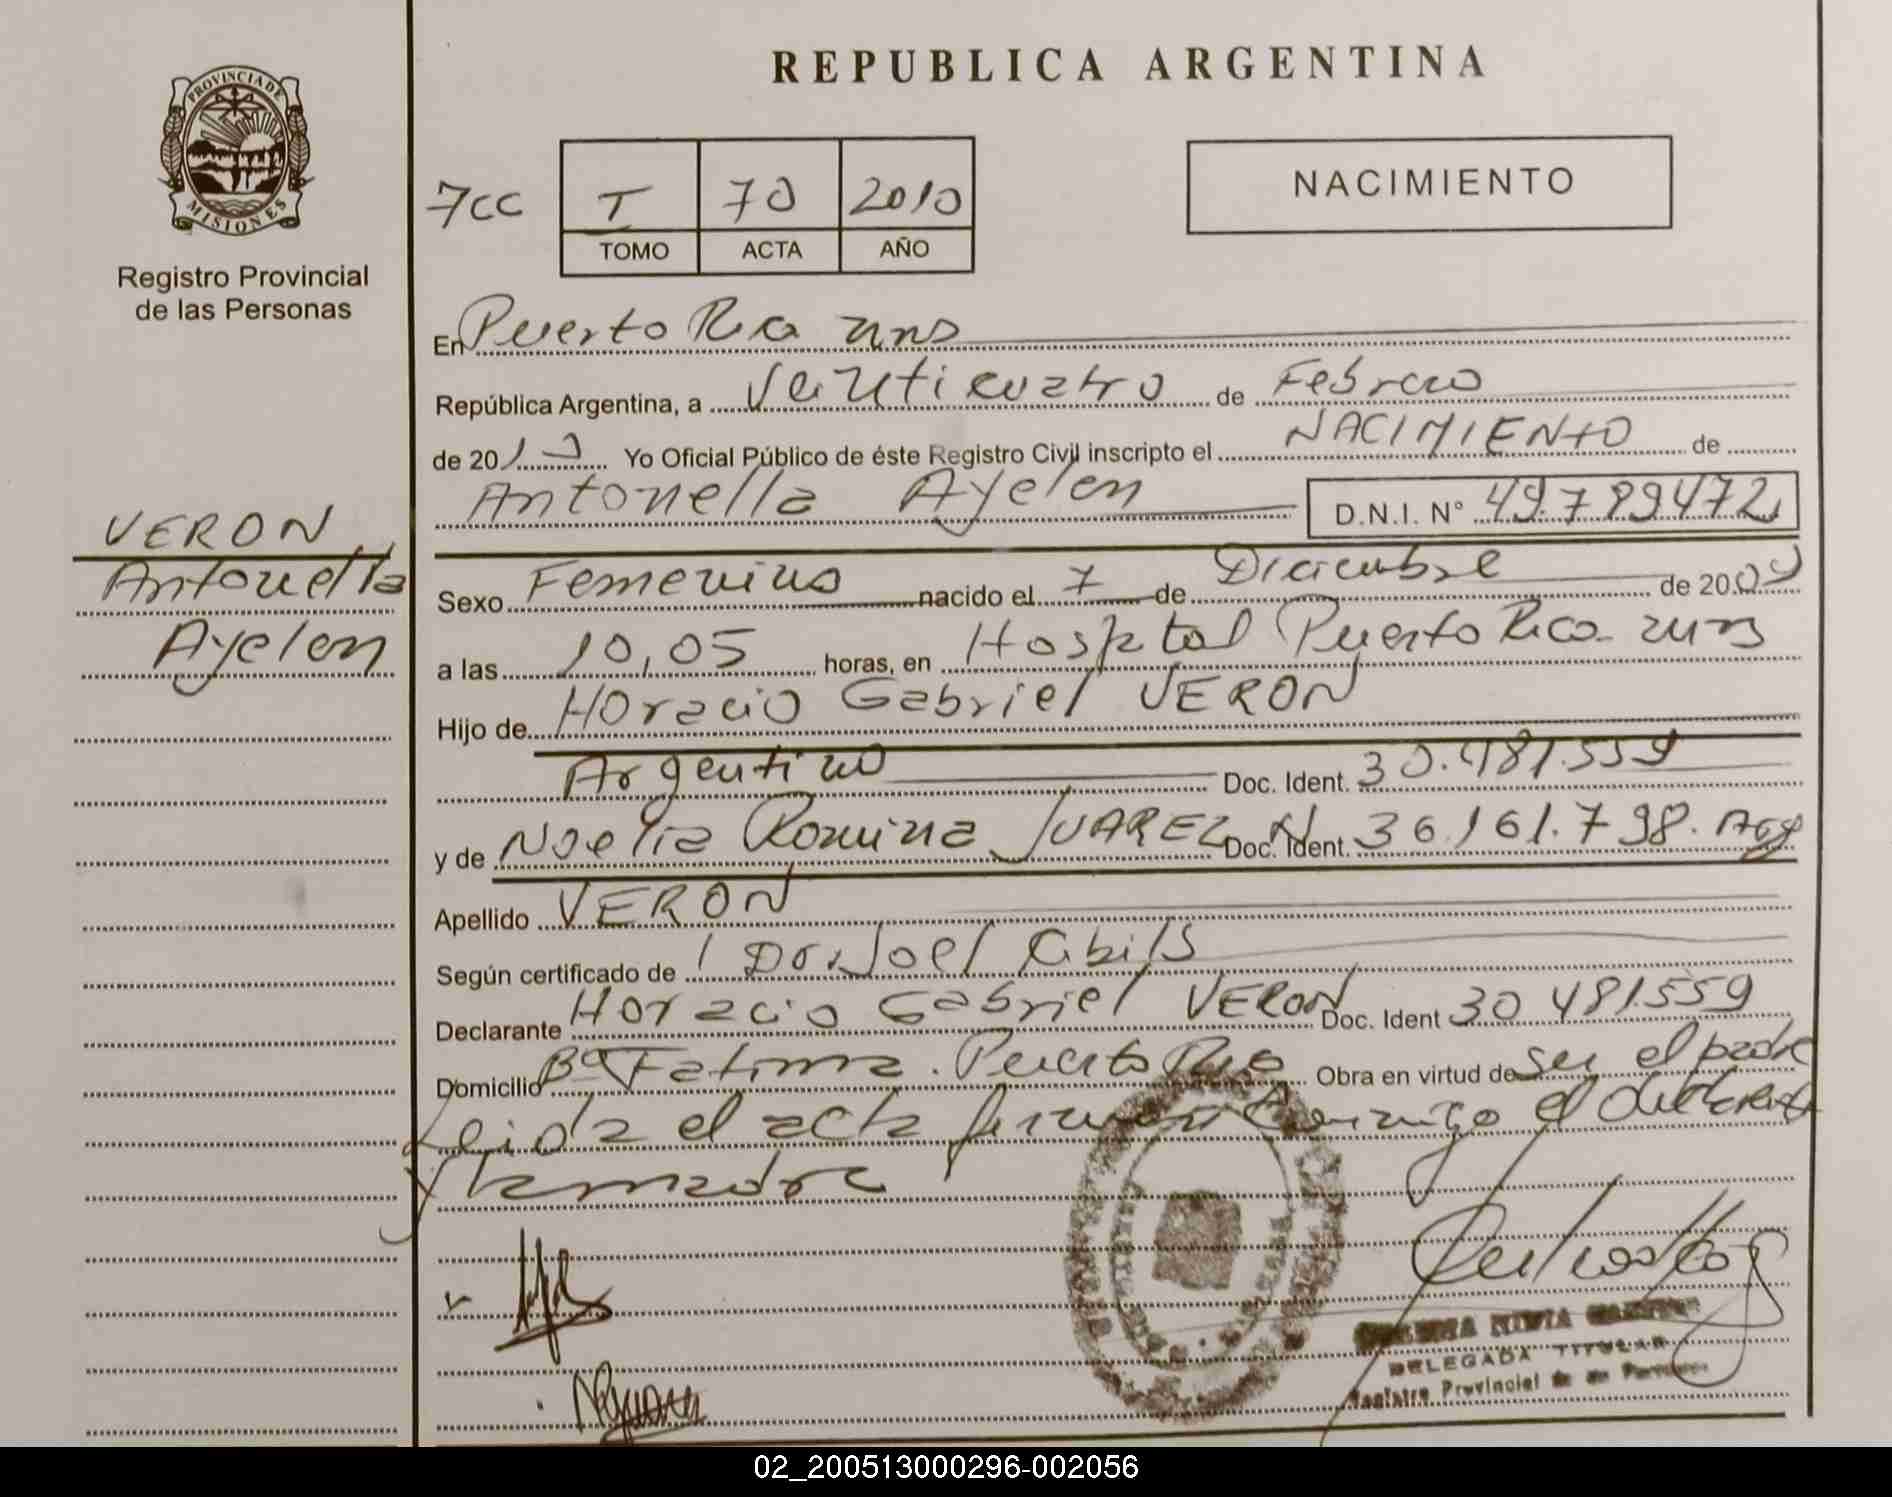 PROVINCIA DE
MISIONES
Registro Provincial
de las Personas
REPUBLICA ARGENTINA
NACIMIENTO
7CC I 70 2010
TOMO ACTA AÑO
En Puerto Rico mns
República Argentina, a Veinticuatro de Febrero
de 2010 Yo Oficial Público de éste Registro Civil inscripto el NACIMIENTO de
Antonella Ayelen D.N.I. N° 49.789472
VERON
Antonella
Ayelen
Sexo Femenino nacido el 7 de Diciembre de 2009
a las 10,05 horas, en Hospital Puerto Rico mns
Hijo de Horacio Gabriel VERON
Argentino Doc. Ident. 30.481.559
y de Noelia Romina JUAREZ Doc. Ident. 36.161.798. Arg
Apellido VERON
Según certificado de Dr. Joel
Declarante Horacio Gabriel VERON Doc. Ident 30 481559
Domicilio Bº Fatima. Puerto Rico Obra en virtud de ser el padre
Leida el acta firman Conmigo el declarante
y la madre
DELEGADA TITULAR
Registro Provincial de las Personas
02_200513000296-002056